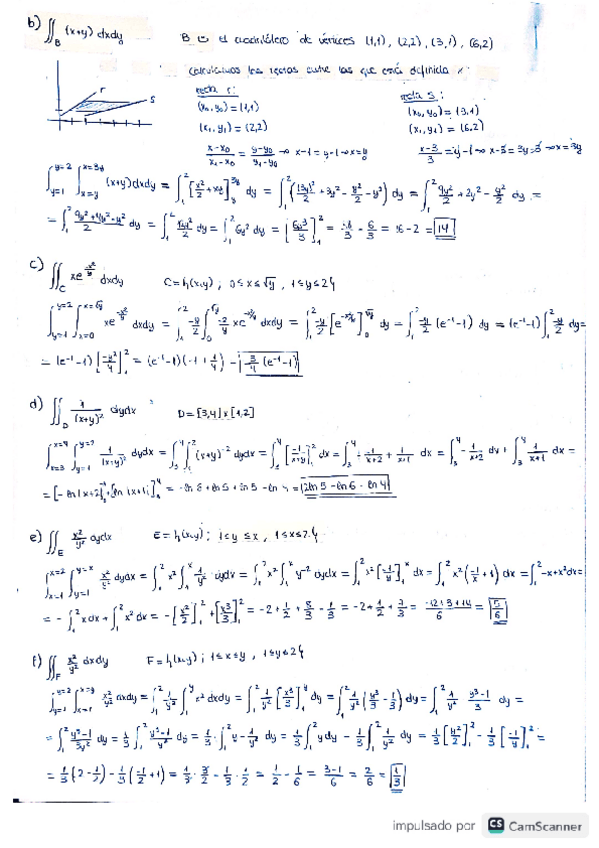 b) ∬_B (x+y) dxdy B es el cuadrilátero de vértices (1,1), (2,2), (3,1), (6,2)
Calculamos las rectas entre las que está definida x:
r s
recta r: recta s:
(x₀,y₀) = (1,1) (x₀,y₀) = (3,1)
(x₁,y₁) = (2,2) (x₁,y₁) = (6,2)
(x-x₀)/(x₁-x₀) = (y-y₀)/(y₁-y₀) → x-1 = y-1 → x=y (x-3)/3 = y-1 → x-3 = 3y-3 → x=3y
∫_{y=1}^{y=2} ∫_{x=y}^{x=3y} (x+y) dxdy = ∫_1^2 [x²/2 + xy]_y^{3y} dy = ∫_1^2 ((3y)²/2 + 3y² - y²/2 - y²) dy = ∫_1^2 9y²/2 + 2y² - y²/2 dy =
= ∫_1^2 (9y²+4y²-y²)/2 dy = ∫_1^2 dy = ∫_1^2 6y² dy = [6y³/3]_1^2 = - 6/3 = 16-2 = 14
c) ∬_C dxdy C={(x,y); 0≤x≤√y, 1≤y≤2}
= (e⁻¹-1) [-y²/4]_1^2 = (e⁻¹-1)(-1+1/4) = -3/4 (e⁻¹-1)
d) ∬_D 1/(x+y)² dydx D=[3,4]x[1,2]
∫_{x=3}^{x=4} ∫_{y=1}^{y=2} 1/(x+y)² dydx = ∫_3^4 ∫_1^2 (x+y)⁻² dydx = ∫_3^4 [-1/(x+y)]_1^2 dx = ∫_3^4 -1/(x+2) + 1/(x+1) dx = ∫_3^4 -1/(x+2) dx + ∫_3^4 1/(x+1) dx =
= [-ln|x+2|]_3^4 + [ln|x+1|]_3^4 = -ln 6 + ln 5 + ln 5 - ln 4 = 2ln 5 - ln 6 - ln 4
e) ∬_E x²/y² dydx E={(x,y); 1≤y≤x, 1≤x≤2}
∫_{x=1}^{x=2} ∫_{y=1}^{y=x} x²/y² dydx = ∫_1^2 x² ∫_1^x 1/y² dydx = ∫_1^2 x² ∫_1^x y⁻² dydx = ∫_1^2 x² [-1/y]_1^x dx = ∫_1^2 x² (-1/x + 1) dx = ∫_1^2 -x+x² dx =
= -∫_1^2 x dx + ∫_1^2 x² dx = -[x²/2]_1^2 + [x³/3]_1^2 = -2 + 1/2 + 8/3 - 1/3 = -2 + 1/2 + 7/3 = (-12+3+14)/6 = 5/6
f) ∬_F x²/y² dxdy F={(x,y); 1≤x≤y, 1≤y≤2}
∫_{y=1}^{y=2} ∫_{x=1}^{x=y} x²/y² dxdy = ∫_1^2 1/y² ∫_1^y x² dxdy = ∫_1^2 1/y² [x³/3]_1^y dy = ∫_1^2 1/y² (y³/3 - 1/3) dy = ∫_1^2 1/y² (y³-1)/3 dy =
= ∫_1^2 (y³-1)/3y² dy = 1/3 ∫_1^2 (y³-1)/y² dy = 1/3 · ∫_1^2 y - 1/y² dy = 1/3 ∫_1^2 y dy - 1/3 ∫_1^2 1/y² dy = 1/3 [y²/2]_1^2 - 1/3 [-1/y]_1^2 =
= 1/3 (2-1/2) - 1/3 (-1/2+1) = 1/3 · 3/2 - 1/3 · 1/2 = 1/2 - 1/6 = (3-1)/6 = 2/6 = 1/3
impulsado por CS CamScanner